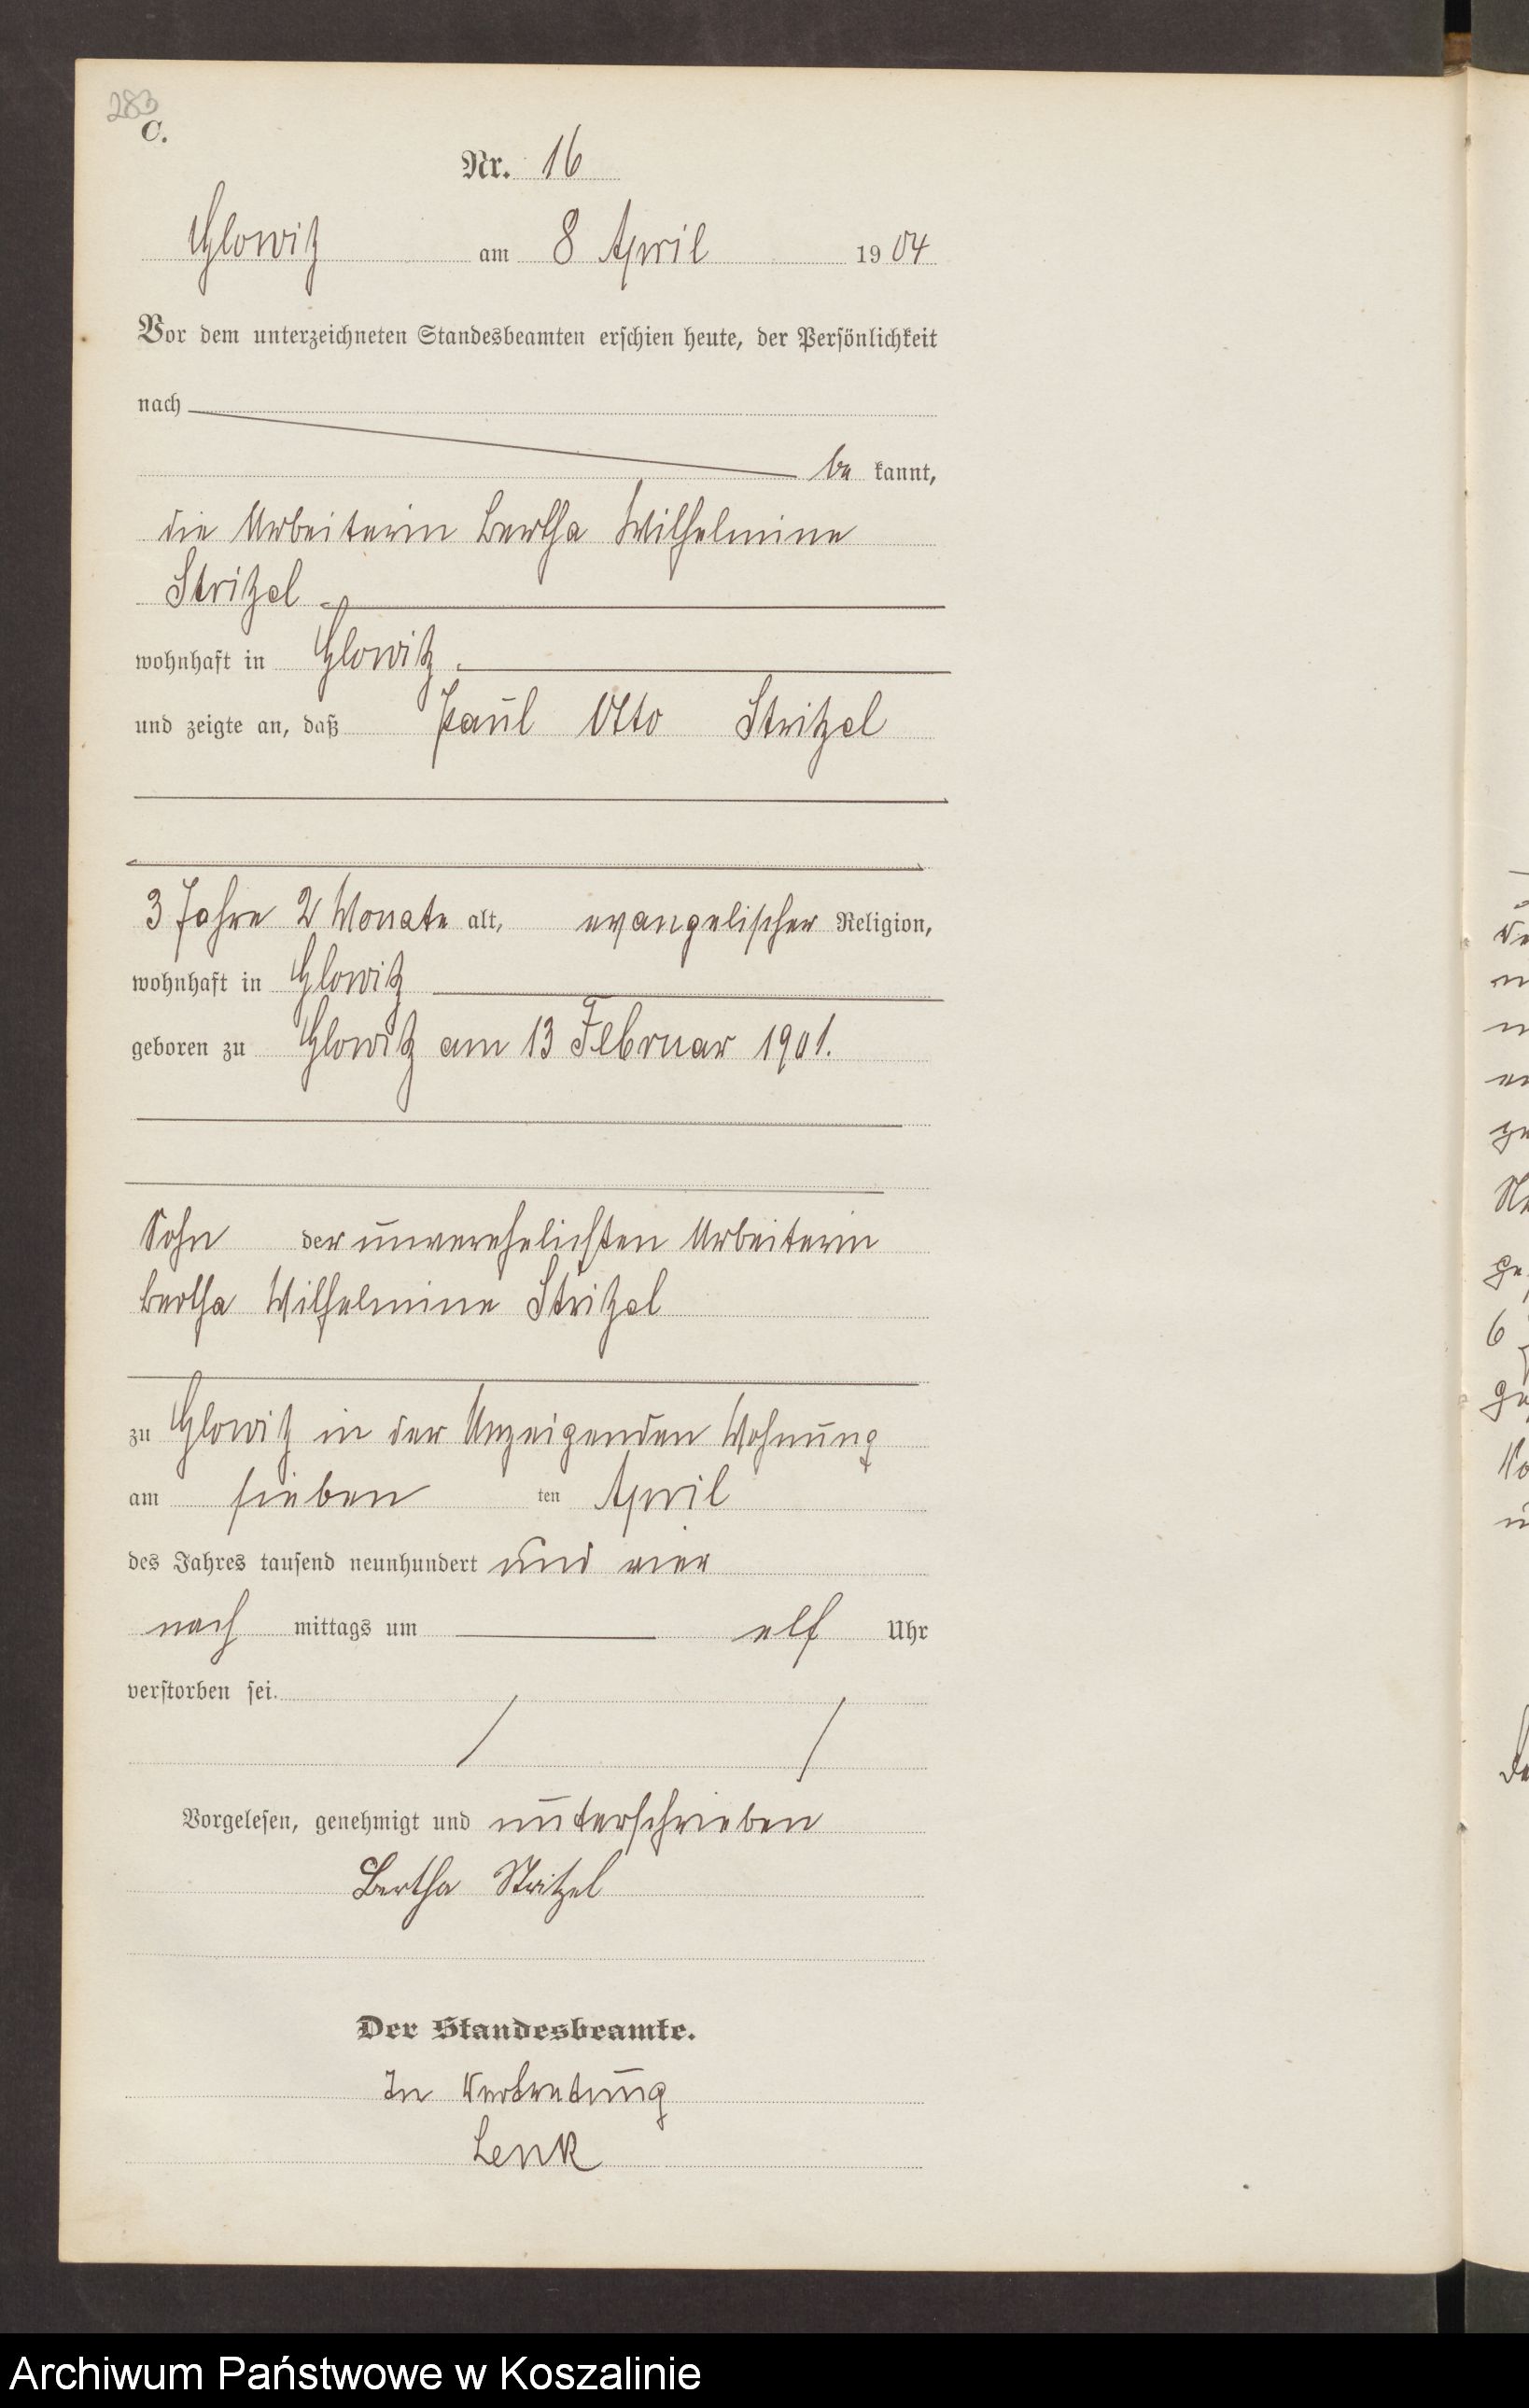 283
C.
Nr. 16
Glowitz am 8 April 1904
Vor dem unterzeichneten Standesbeamten erschien heute, der Persönlichkeit
nach
be kannt,
die Arbeiterin Bertha Wilhelmine
Stritzel
wohnhaft in Glowitz
und zeigte an, daß Paul Otto Stritzel
3 Jahre 2 Monate alt, evangelischer Religion,
wohnhaft in Glowitz
geboren zu Glowitz am 13 Februar 1901.
Sohn der unverehelichten Arbeiterin
Bertha Wilhelmine Stritzel
zu Glowitz in der Anzeigenden Wohnung
am sieben ten April
des Jahres tausend neunhundert und vier
nach mittags um elf Uhr
verstorben sei.
Vorgelesen, genehmigt und unterschrieben
Bertha Stritzel
Der Standesbeamte.
In Vertretung
Lenk
Archiwum Państwowe w Koszalinie